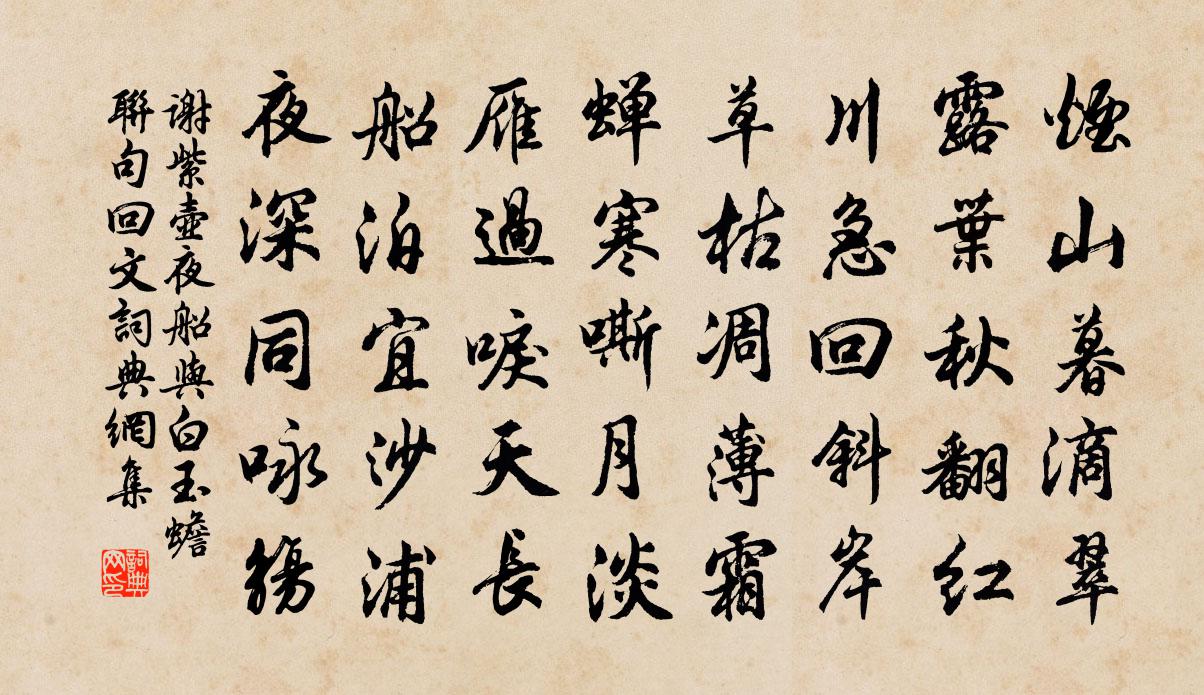 煙山暮滴翠
露葉秋翻紅
川急回斜岸
草枯凋薄霜
蝉寒嘶月淡
雁過唳天長
船泊宜沙浦
夜深同咏觴
謝紫壺夜船與白玉蟾
聯句回文詞典網集
詞典
网印